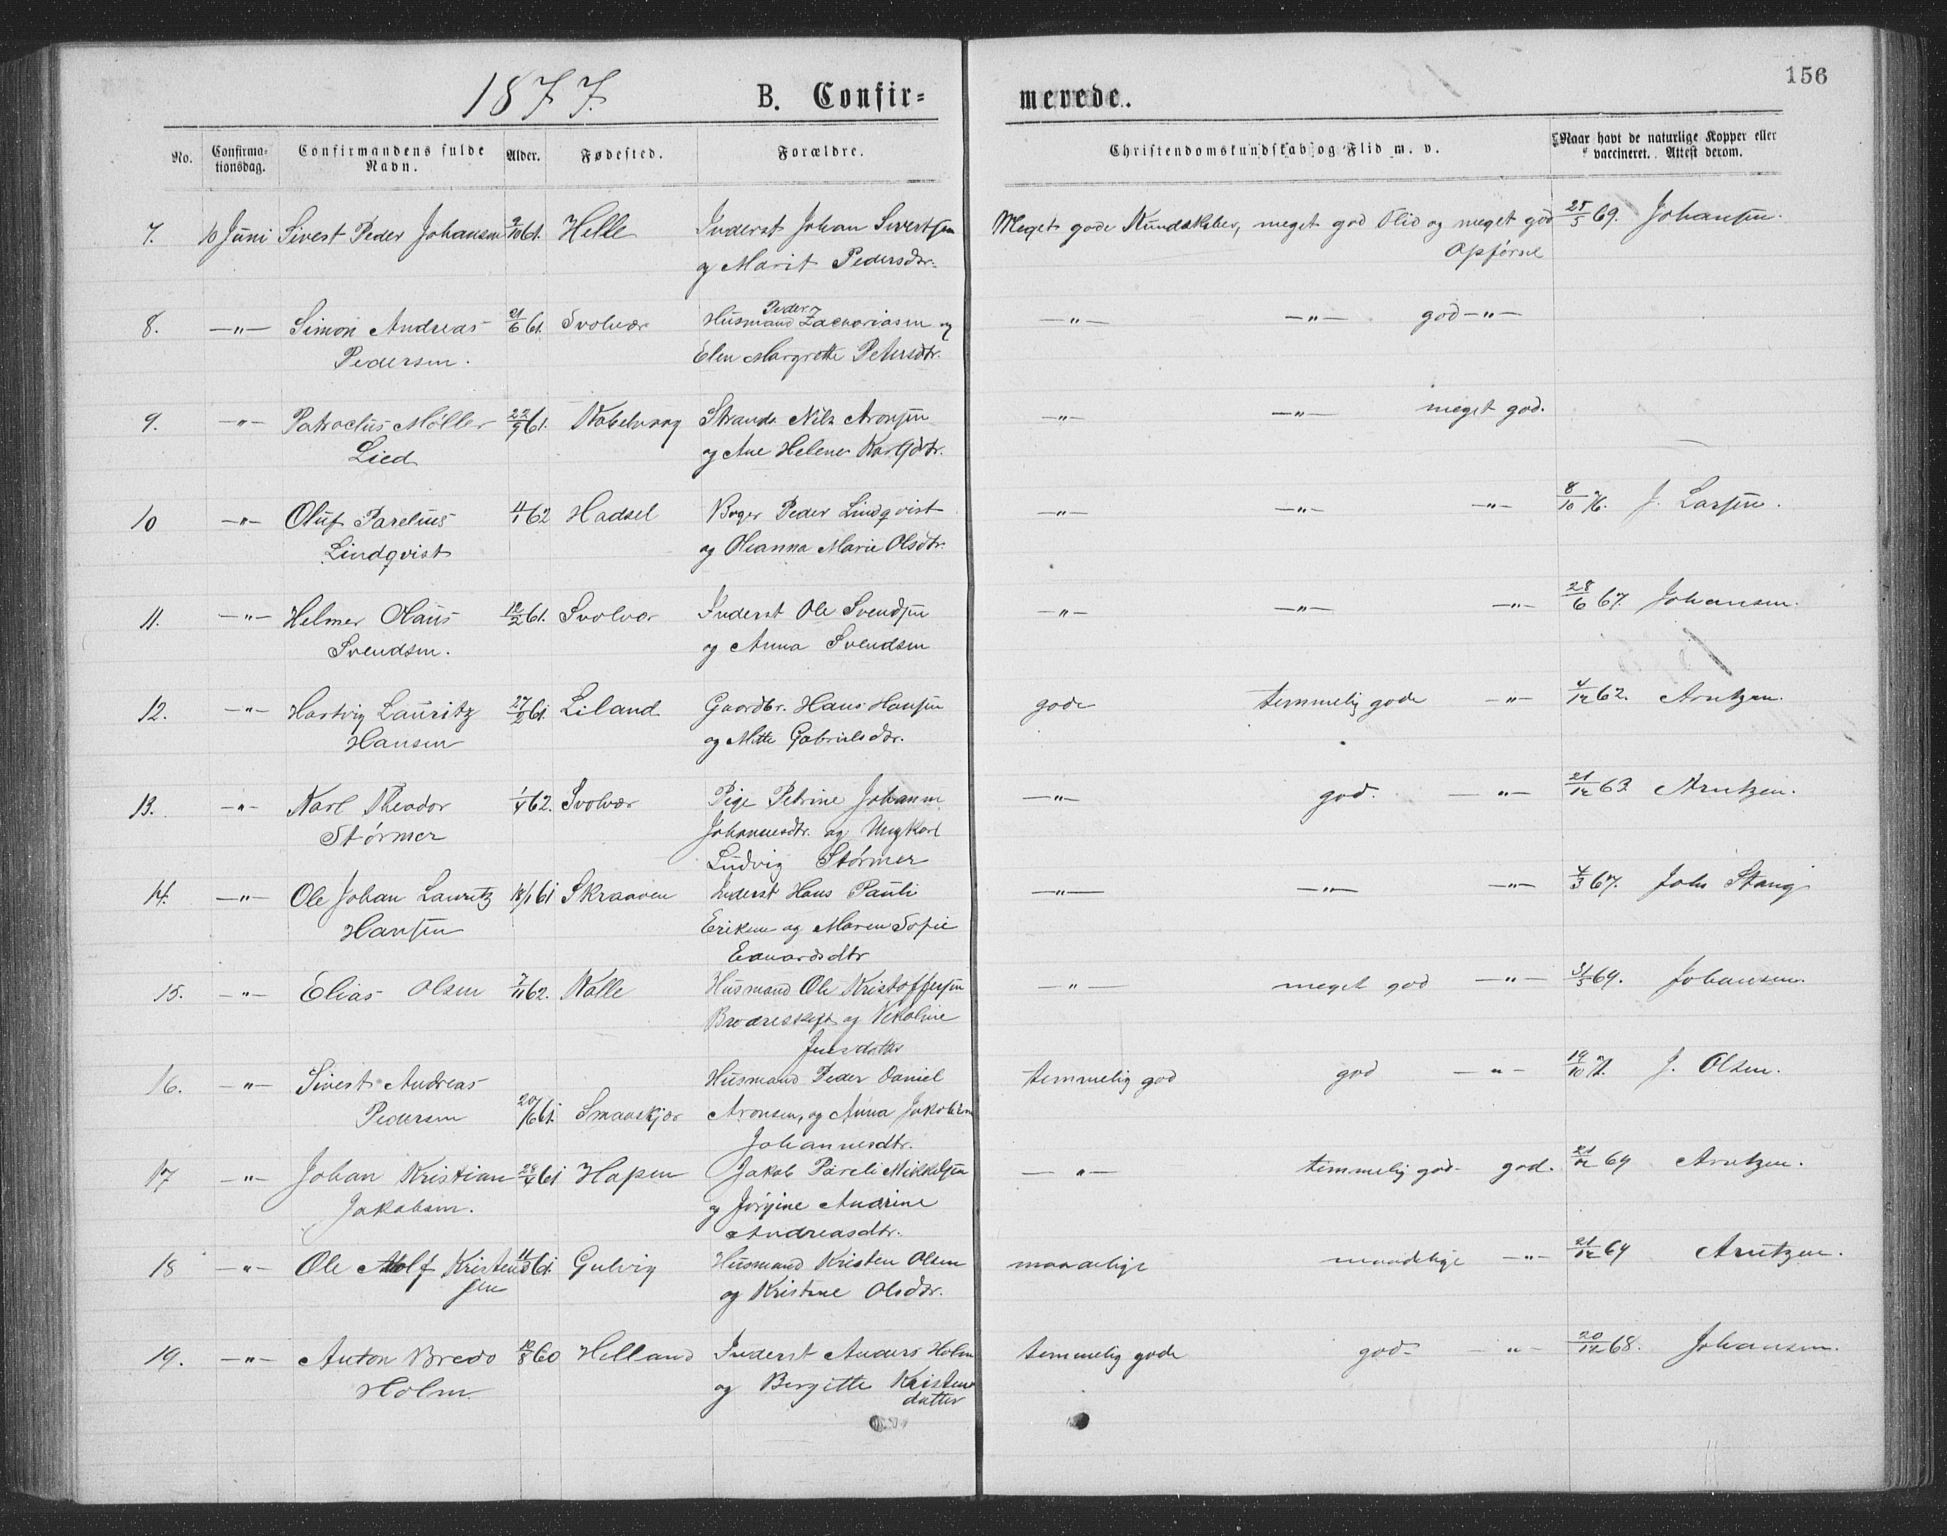 156
1877.
B. Confir= merede.
No. Confirma- tionsdag. Confirmandens fulde Navn. Alder. Fødested. Forældre. Christendomskundskab og Flid m. v. Naar havt de naturlige Kopper eller vaccineret. Attest derom.
7. 10 Juni Sivert Peder Johansen 9/10 61. Helle Inderst Johan Sivertsen Meget gode Kundskaber, meget god Flid og meget god 25/5 69. Johansen.
og Marit Pedersdr. Opførsel
8. —"— Simon Andreas 21/6 61. Svolvær Husmand Peder Zachariasen og —"— —"— god —"—
Pedersen. Elen Margrethe Petersdtr.
9. —"— Patroclus Møller 22/9 61. Kabelvaag Strands. Nils Aronsen —"— —"— meget god.
Lied og Ane Helene Karlsdtr.
10 —"— Oluf Parelius 4/1 62 Hadsel Peder Lindqvist —"— —"— —"— 8/10 76. J. Larsen.
Lindqvist og Oleanna Marie Olsdtr.
11. —"— Helmer Olaus 12/2 61. Svolvær Inderst Ole Svendsen —"— —"— —"— 28/6 67. Johansen.
Svendsen. og Anna Svendsen
12. —"— Hartvig Lauritz 27/2 61. Liland Gaardbr. Hans Hansen gode temmelig gode —"— 4/12 62. Arntzen.
Hansen og Mette Gabrielsdr.
13. —"— Karl Theodor 1/4 62. Svolvær Pige Petrine Johanne —"— god. —"— 21/12 63 Arntzen.
Størmer Johannesdtr. og Ungkarl
Ludvig Størmer
14. —"— Ole Johan Lauritz 18/1 61 Skraaven Inderst Hans Pauli —"— —"— —"— 4/3 67. Joh. Stang
Hansen Eriksen og Maren Sofie
Edvardsdtr
15. —"— Elias Olsen 7/11 62. Kalle Husmand Ole Kristoffersen —"— meget god —"— 31/5 69. Johansen.
og Nikoline
Jensdatter
16. —"— Sivert Andreas Husmand Peder Daniel temmelig god god —"— 19/10 71. J. Olsen.
Pedersen 20/6 61. Smaaskjær Aronsen, og Anna Jakobine
Johannesdtr.
17 —"— Johan Kristian 28/4 61 Hopen Jakob Pareli Mikkelsen —"— temmelig god god. 21/12 69 Arntzen.
Jakobsen. og Jørgine Andrine
Andreasdtr.
18 —"— Ole Adolf Kristen 11/5 61. Gulvig Husmand Kristen Olsen maadelige maadelige —"— 21/12 64 Arntzen.
sen og Kristine Olsdr.
19. —"— Anton Bredo 12/8 60 Helland Inderst Anders Holm temmelig gode god —"— 20/12 68. Johansen.
Holm og Bergitte Kristens
datter